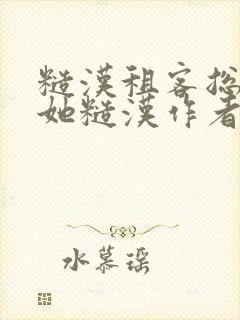 糙漢租客挖
她糙漢作者
水慕瑶